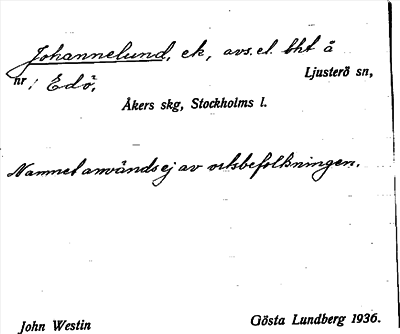 Johannelund, ek, avs. el. bht å
nr 1 Edö, Ljusterö sn,
Åkers skg, Stockholms l.
Namnet användes ej av ortsbefolkningen.
John Westin Gösta Lundberg 1936.